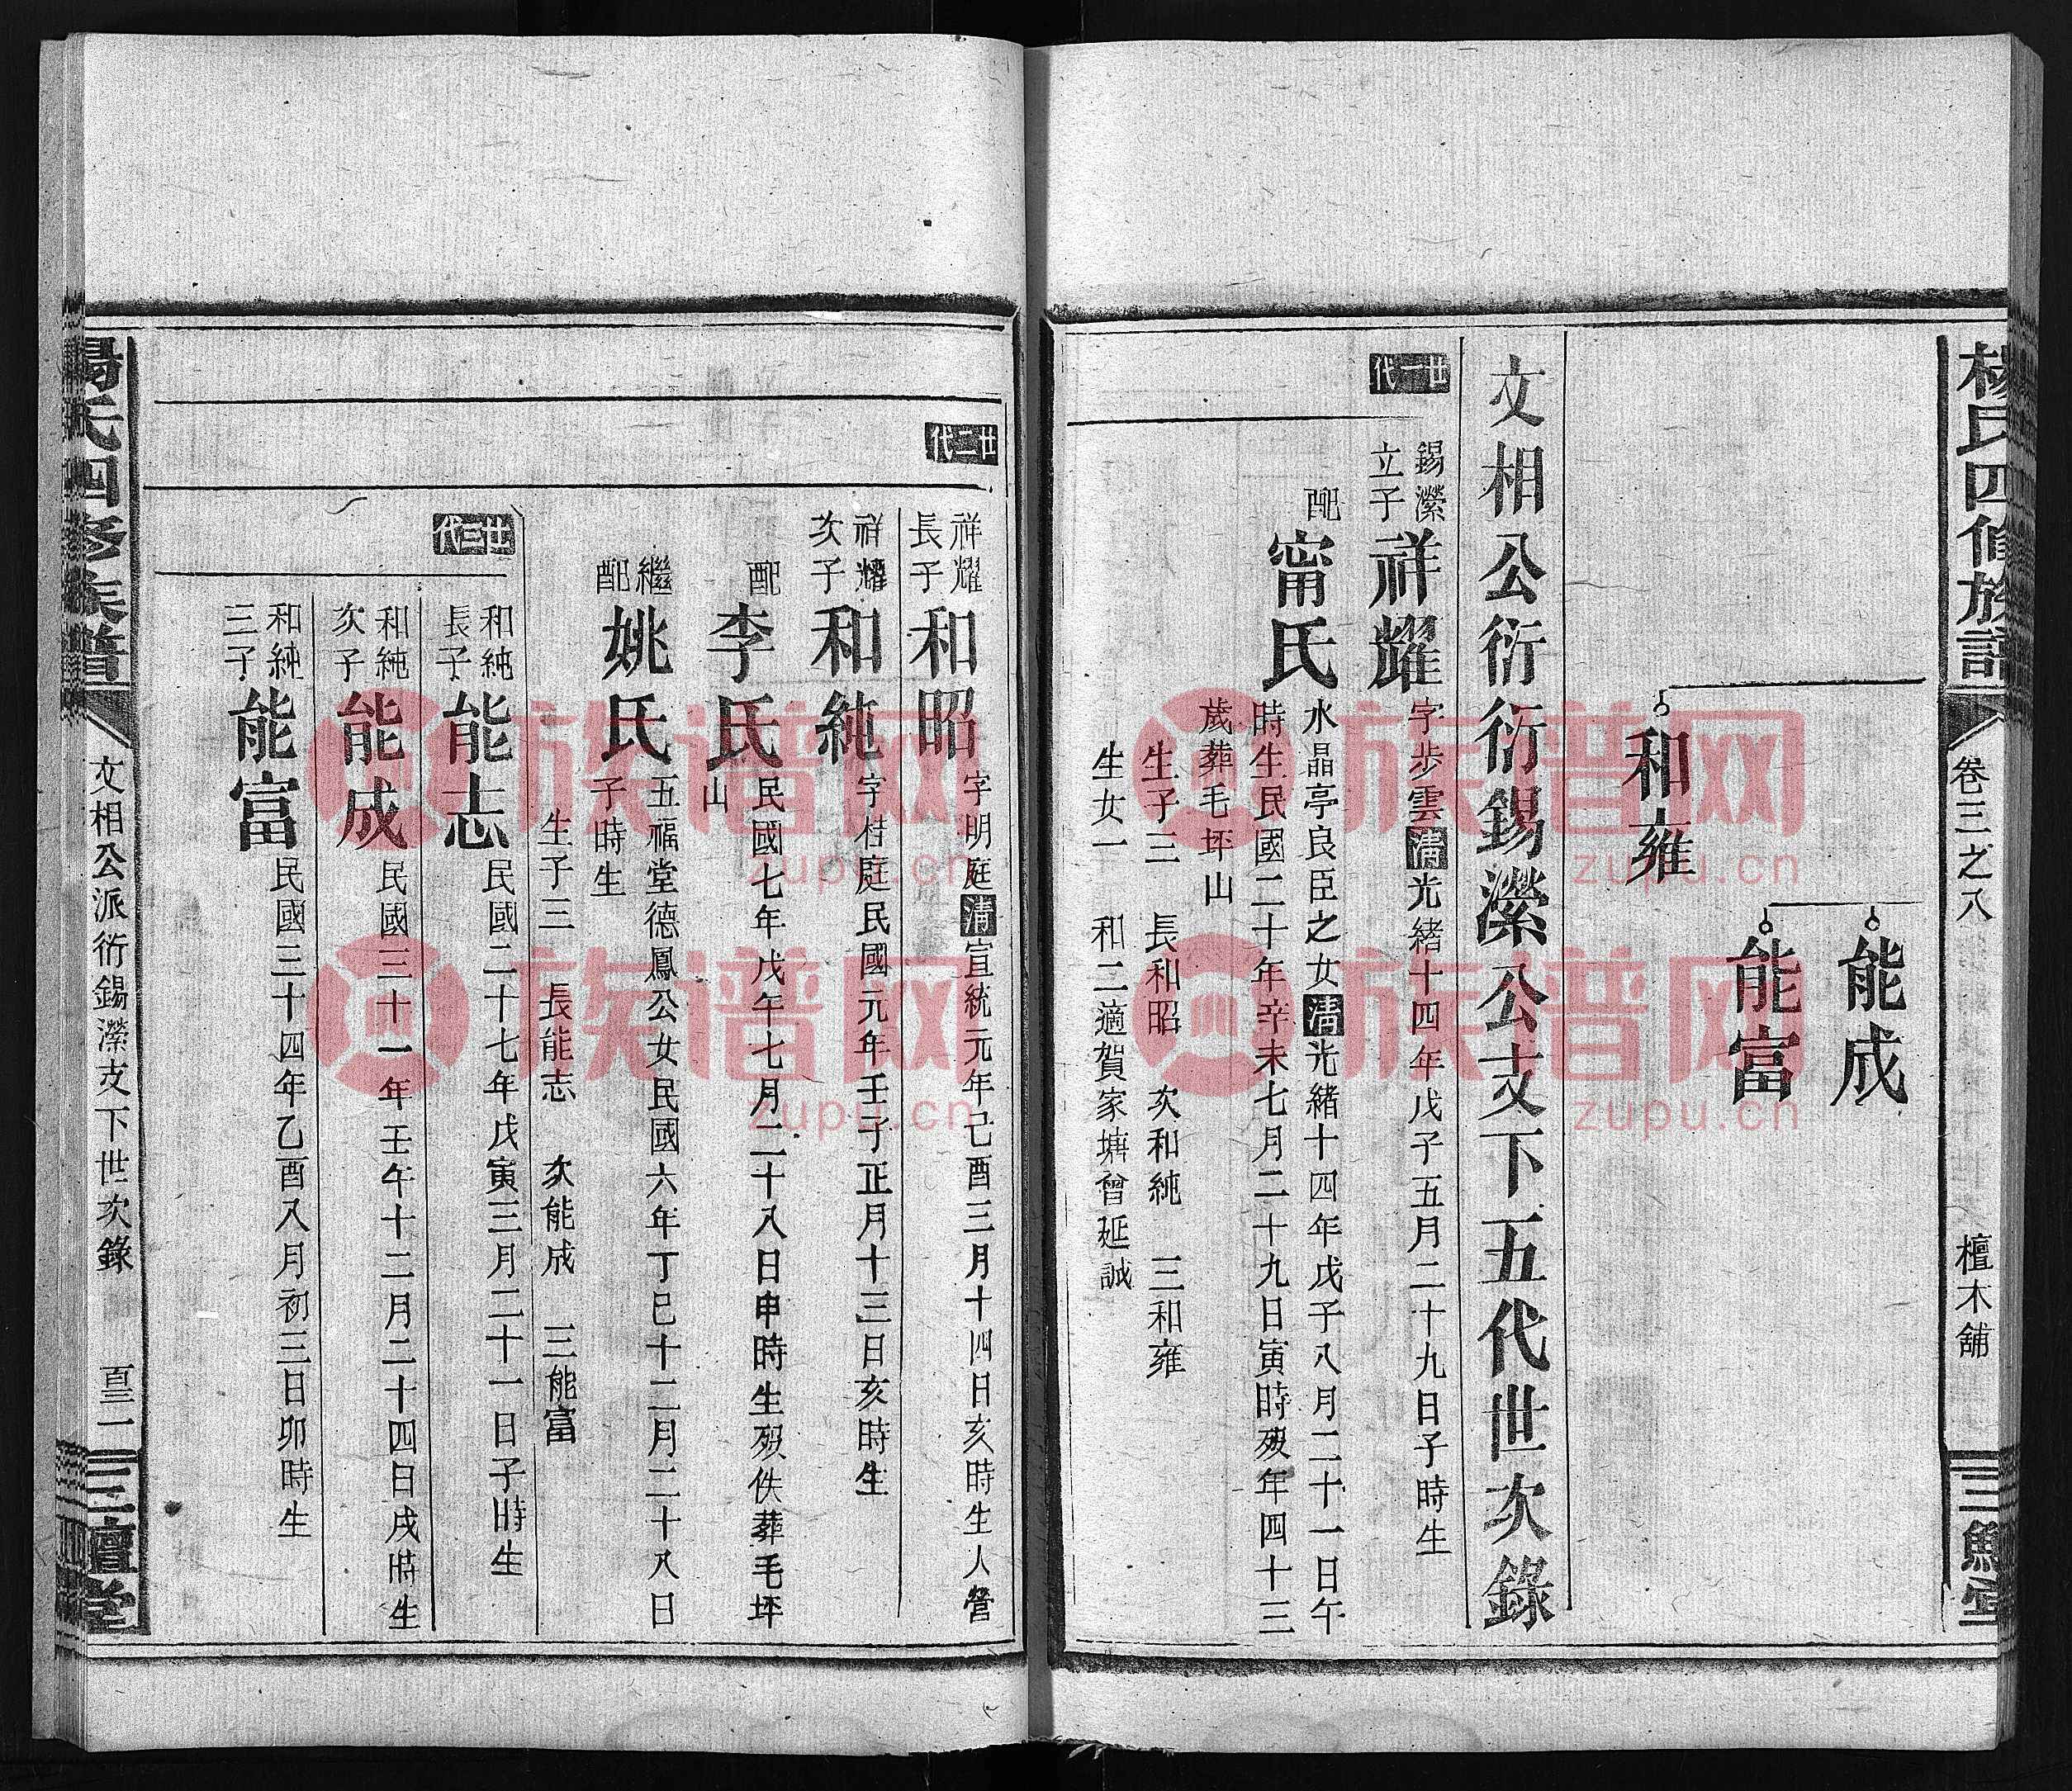 楊氏四修族譜
卷三之八
檀木舖
三鱣堂
能成
能富
和雍
文相公衍衍錫濴公支下五代世次錄
廿一代
錫濴立子
祥耀
字步雲清光緒十四年戊子五月二十九日子時生
配
甯氏
水晶亭良臣之女清光緒十四年戊子八月二十一日午
時生民國二十年辛未七月二十九日寅時歿年四十三
歲葬毛坪山
生子三 長和昭 次和純 三和雍
生女一 和二適賀家塘曾延誠
廿二代
祥耀長子
和昭
字明庭清宣統元年己酉三月十四日亥時生人營
祥耀次子
和純
字桂庭民國元年壬子正月十三日亥時生
配
李氏
民國七年戊午七月二十八日申時生歿佚葬毛坪
山
繼配
姚氏
五福堂德鳳公女民國六年丁巳十二月二十八日
子時生
生子三 長能志 次能成 三能富
廿三代
和純長子
能志
民國二十七年戊寅三月二十一日子時生
和純次子
能成
民國三十一年壬午十二月二十四日戌時生
和純三子
能富
民國三十四年乙酉八月初三日卯時生
楊氏四修族譜
文相公派衍錫濴支下世次錄
三鱣堂
族谱网
zupu.cn
族谱网
zupu.cn
族谱网
zupu.cn
族谱网
zupu.cn